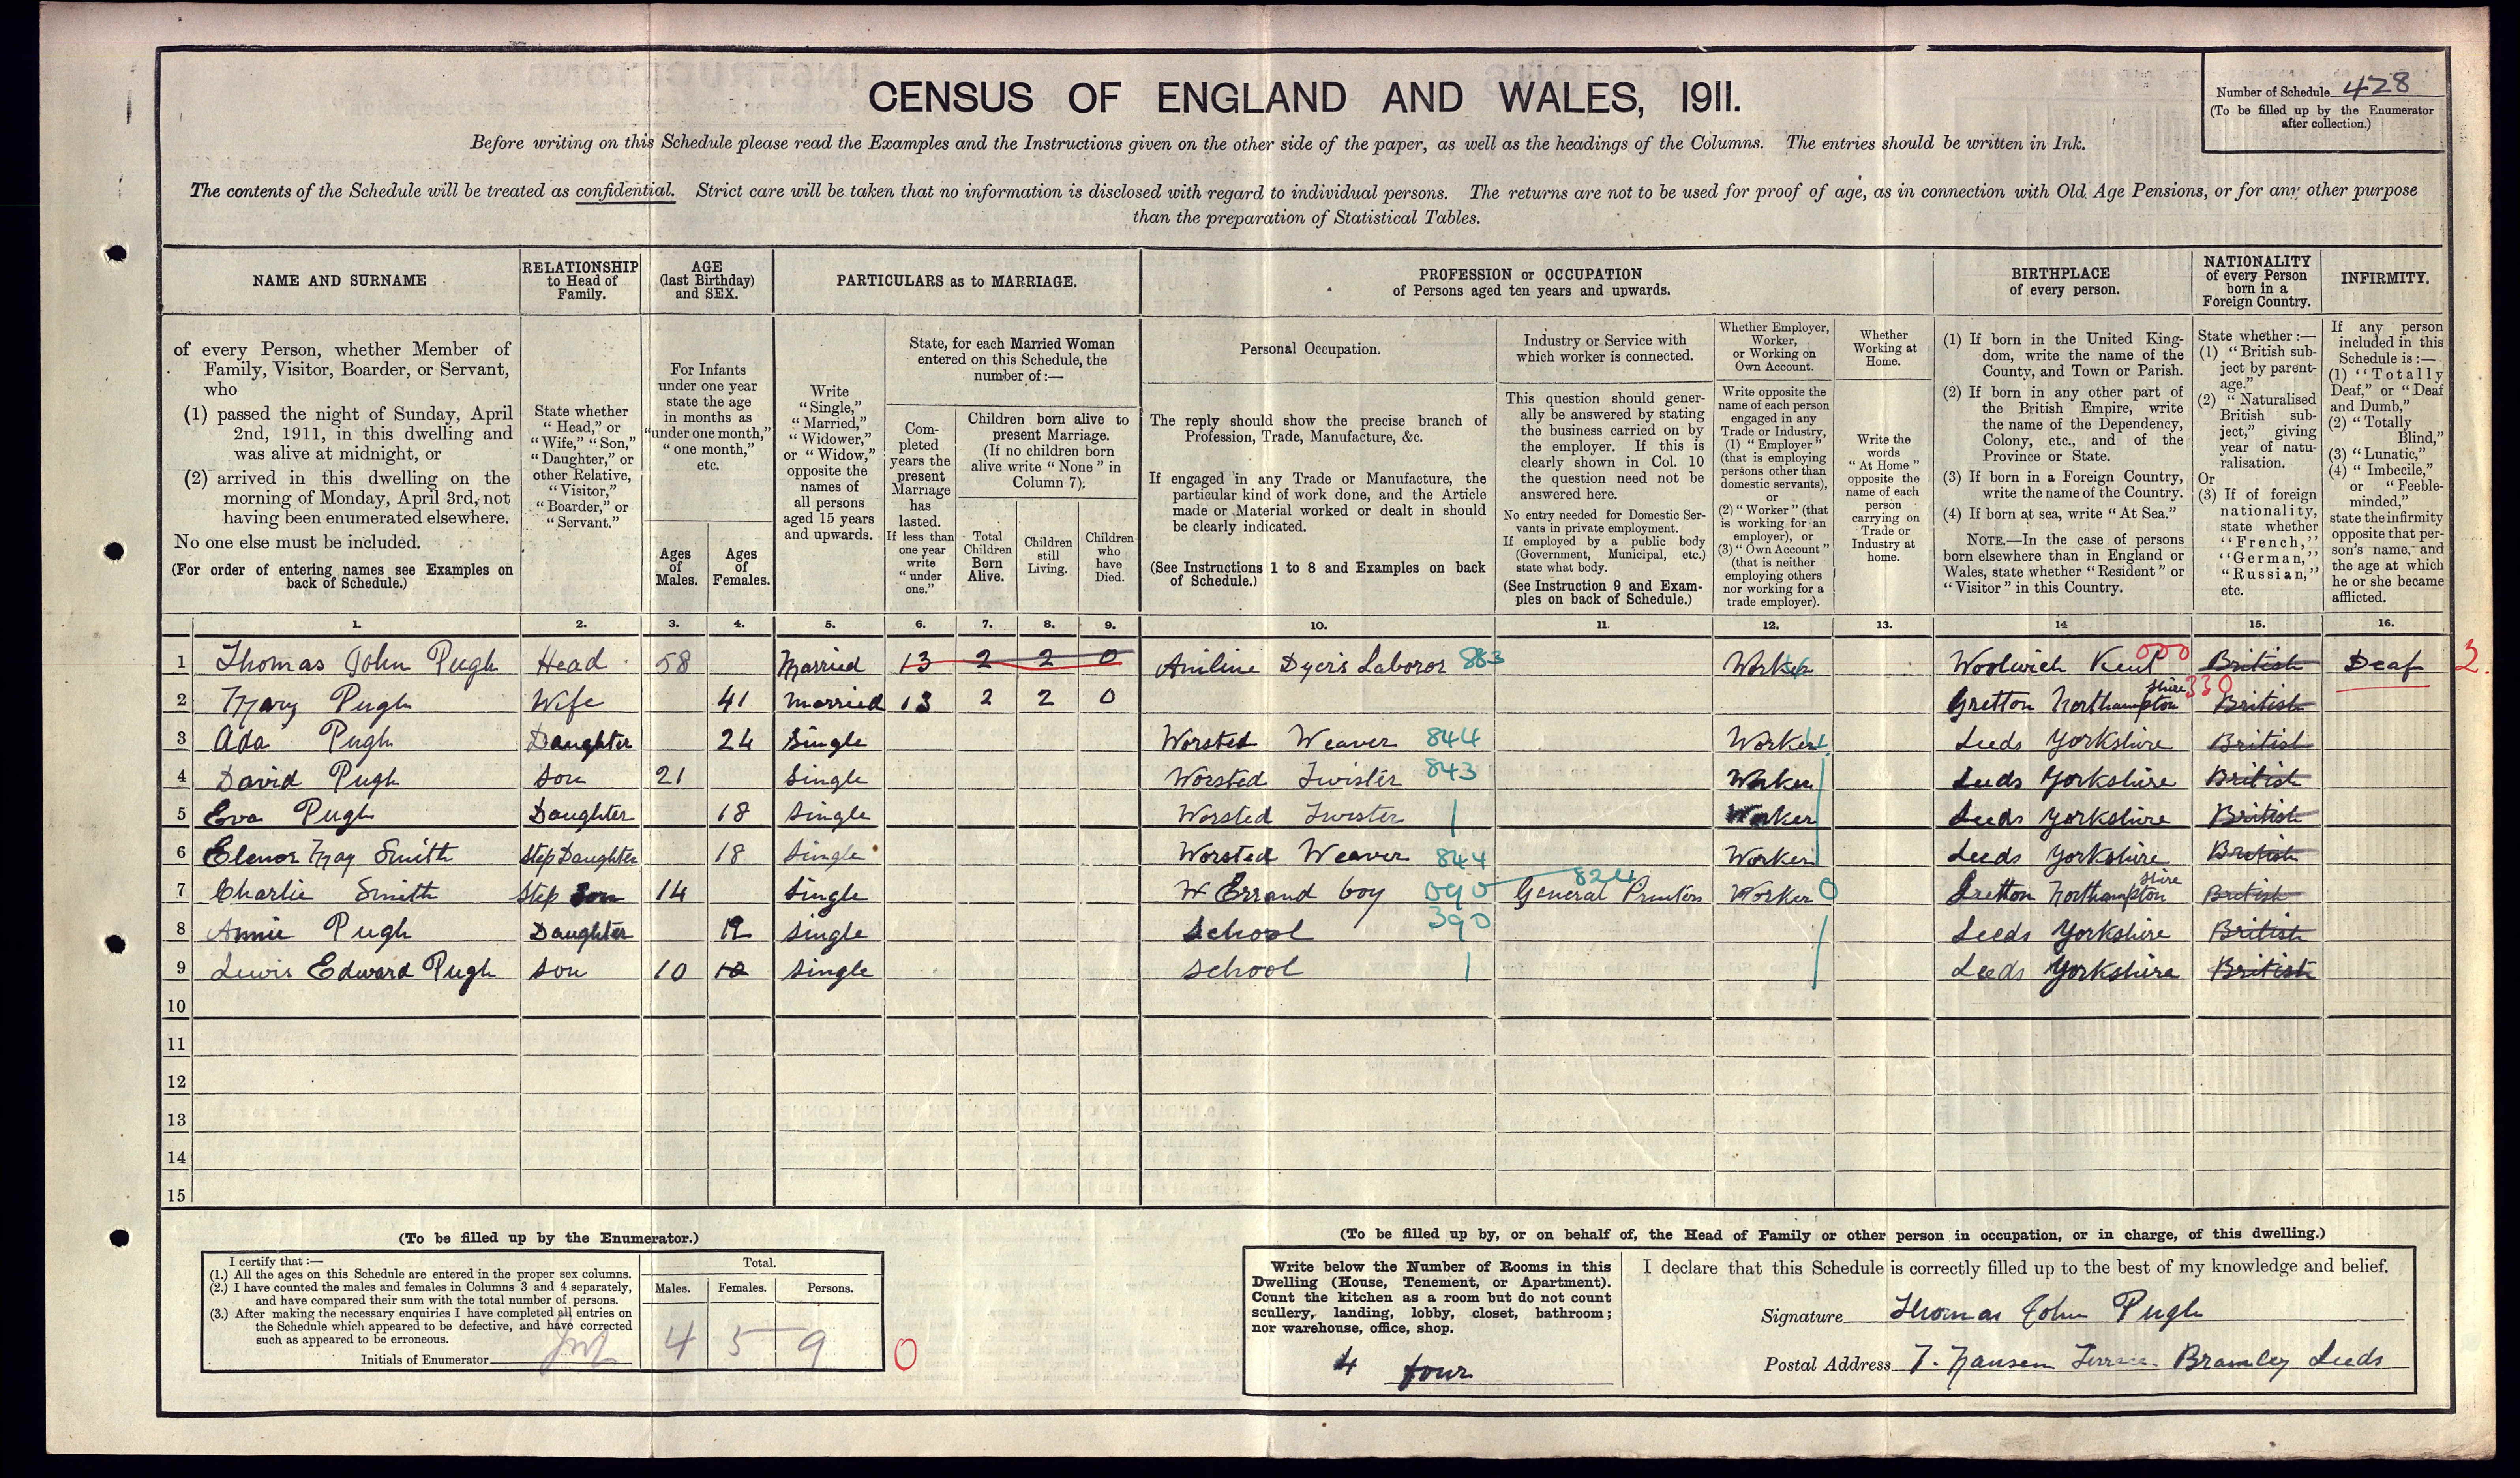 CENSUS OF ENGLAND AND WALES, 1911.
Number of Schedule 428
(To be filled up by the Enumerator
after collection.)
Before writing on this Schedule please read the Examples and the Instructions given on the other side of the paper, as well as the headings of the Columns. The entries should be written in Ink.
The contents of the Schedule will be treated as confidential. Strict care will be taken that no information is disclosed with regard to individual persons. The returns are not to be used for proof of age, as in connection with Old Age Pensions, or for any other purpose
than the preparation of Statistical Tables.
NAME AND SURNAME
of every Person, whether Member of
Family, Visitor, Boarder, or Servant,
who
(1) passed the night of Sunday, April
2nd, 1911, in this dwelling and
was alive at midnight, or
(2) arrived in this dwelling on the
morning of Monday, April 3rd, not
having been enumerated elsewhere.
No one else must be included.
(For order of entering names see Examples on
back of Schedule.)
RELATIONSHIP
to Head of
Family.
State whether
"Head," or
"Wife," "Son,"
"Daughter," or
other Relative,
"Visitor,"
"Boarder," or
"Servant."
AGE
(last Birthday)
and SEX.
For Infants
under one year
state the age
in months as
"under one month,"
"one month,"
etc.
Ages
of
Males.
Ages
of
Females.
PARTICULARS as to MARRIAGE.
Write
"Single,"
"Married,"
"Widower,"
or "Widow,"
opposite the
names of
all persons
aged 15 years
and upwards.
State, for each Married Woman
entered on this Schedule, the
number of :—
Com-
pleted
years the
present
Marriage
has
lasted.
If less than
one year
write
"under
one."
Children born alive to
present Marriage.
(If no children born
alive write "None" in
Column 7).
Total
Children
Born
Alive.
Children
still
Living.
Children
who
have
Died.
PROFESSION or OCCUPATION
of Persons aged ten years and upwards.
Personal Occupation.
The reply should show the precise branch of
Profession, Trade, Manufacture, &c.
If engaged in any Trade or Manufacture, the
particular kind of work done, and the Article
made or Material worked or dealt in should
be clearly indicated.
(See Instructions 1 to 8 and Examples on back
of Schedule.)
Industry or Service with
which worker is connected.
This question should gener-
ally be answered by stating
the business carried on by
the employer. If this is
clearly shown in Col. 10
the question need not be
answered here.
No entry needed for Domestic Ser-
vants in private employment.
If employed by a public body
(Government, Municipal, etc.)
state what body.
(See Instruction 9 and Exam-
ples on back of Schedule.)
Whether Employer,
Worker,
or Working on
Own Account.
Write opposite the
name of each person
engaged in any
Trade or Industry,
(1) "Employer"
(that is employing
persons other than
domestic servants),
or
(2) "Worker" (that
is working for an
employer), or
(3) "Own Account"
(that is neither
employing others
nor working for a
trade employer).
Whether
Working at
Home.
Write the
words
"At Home"
opposite the
name of each
person
carrying on
Trade or
Industry at
home.
BIRTHPLACE
of every person.
(1) If born in the United King-
dom, write the name of the
County, and Town or Parish.
(2) If born in any other part of
the British Empire, write
the name of the Dependency,
Colony, etc., and of the
Province or State.
(3) If born in a Foreign Country,
write the name of the Country.
(4) If born at sea, write "At Sea."
NOTE.—In the case of persons
born elsewhere than in England or
Wales, state whether "Resident" or
"Visitor" in this Country.
NATIONALITY
of every Person
born in a
Foreign Country.
State whether :—
(1) "British sub-
ject by parent-
age."
(2) "Naturalised
British sub-
ject," giving
year of natu-
ralisation.
Or
(3) If of foreign
nationality,
state whether
"French,"
"German,"
"Russian,"
etc.
INFIRMITY.
If any person
included in this
Schedule is :—
(1) "Totally
Deaf," or "Deaf
and Dumb,"
(2) "Totally
Blind,"
(3) "Lunatic,"
(4) "Imbecile,"
or "Feeble-
minded,"
state the infirmity
opposite that per-
son's name, and
the age at which
he or she became
afflicted.
1. 2. 3. 4. 5. 6. 7. 8. 9. 10. 11. 12. 13. 14 15. 16.
1 Thomas John Pugh Head 58 Married 13 2 2 0 Aniline Dyers Laboror 883 Worker Woolwich Kent 000 British Deaf 2.
2 Mary Pugh Wife 41 Married 13 2 2 0 Gretton Northamptonshire 330 British
3 Ada Pugh Daughter 24 Single Worsted Weaver 844 Worker Leeds Yorkshire British
4 David Pugh Son 21 Single Worsted Twister 843 Worker Leeds Yorkshire British
5 Eva Pugh Daughter 18 Single Worsted Twister Worker Leeds Yorkshire British
6 Elenor May Smith Step Daughter 18 Single Worsted Weaver 844 Worker Leeds Yorkshire British
7 Charlie Smith Step Son 14 Single Errand boy 090 General Printers 824 Worker 0 Gretton Northamptonshire British
8 Annie Pugh Daughter 12 Single School 390 Leeds Yorkshire British
9 Lewis Edward Pugh Son 10 10 Single School Leeds Yorkshire British
10
11
12
13
14
15
(To be filled up by the Enumerator.)
I certify that :—
(1.) All the ages on this Schedule are entered in the proper sex columns.
(2.) I have counted the males and females in Columns 3 and 4 separately,
and have compared their sum with the total number of persons.
(3.) After making the necessary enquiries I have completed all entries on
the Schedule which appeared to be defective, and have corrected
such as appeared to be erroneous.
Initials of Enumerator
Total.
Males. Females. Persons.
4 5 9
0
(To be filled up by, or on behalf of, the Head of Family or other person in occupation, or in charge, of this dwelling.)
Write below the Number of Rooms in this
Dwelling (House, Tenement, or Apartment).
Count the kitchen as a room but do not count
scullery, landing, lobby, closet, bathroom;
nor warehouse, office, shop.
4 four
I declare that this Schedule is correctly filled up to the best of my knowledge and belief.
Signature Thomas John Pugh
Postal Address 7. Nansen Terrace. Bramley Leeds